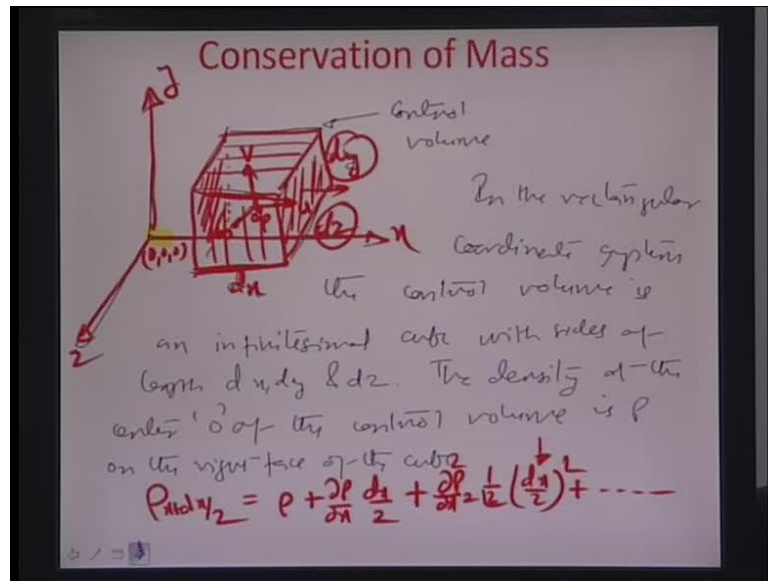 Conservation of Mass
y
control
volume
v
dy
o
dz
x
(0,0,0)
dx
z
In the rectangular
coordinate system
the control volume is
an infinitesimal cube with sides of
length dx, dy & dz. The density at the
center 'O' of the control volume is ρ
on the right face of the cube
ρx+dx/2 = ρ + ∂ρ/∂x dx/2 + ∂²ρ/∂x² 1/2 (dx/2)² + -----